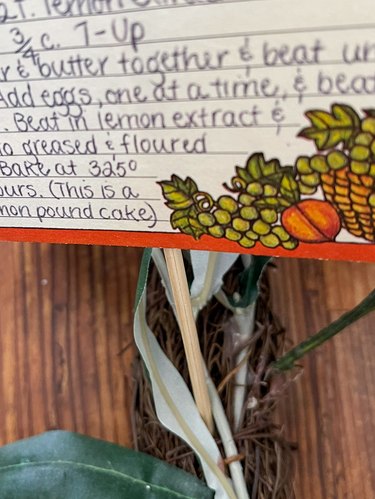 2 T. lemon
3/4 c. 7-Up
r & butter together & beat un
Add eggs, one at a time, & bea
. Beat in lemon extract &
o greased & floured
Bake at 325°
ours. (This is a
mon pound cake)